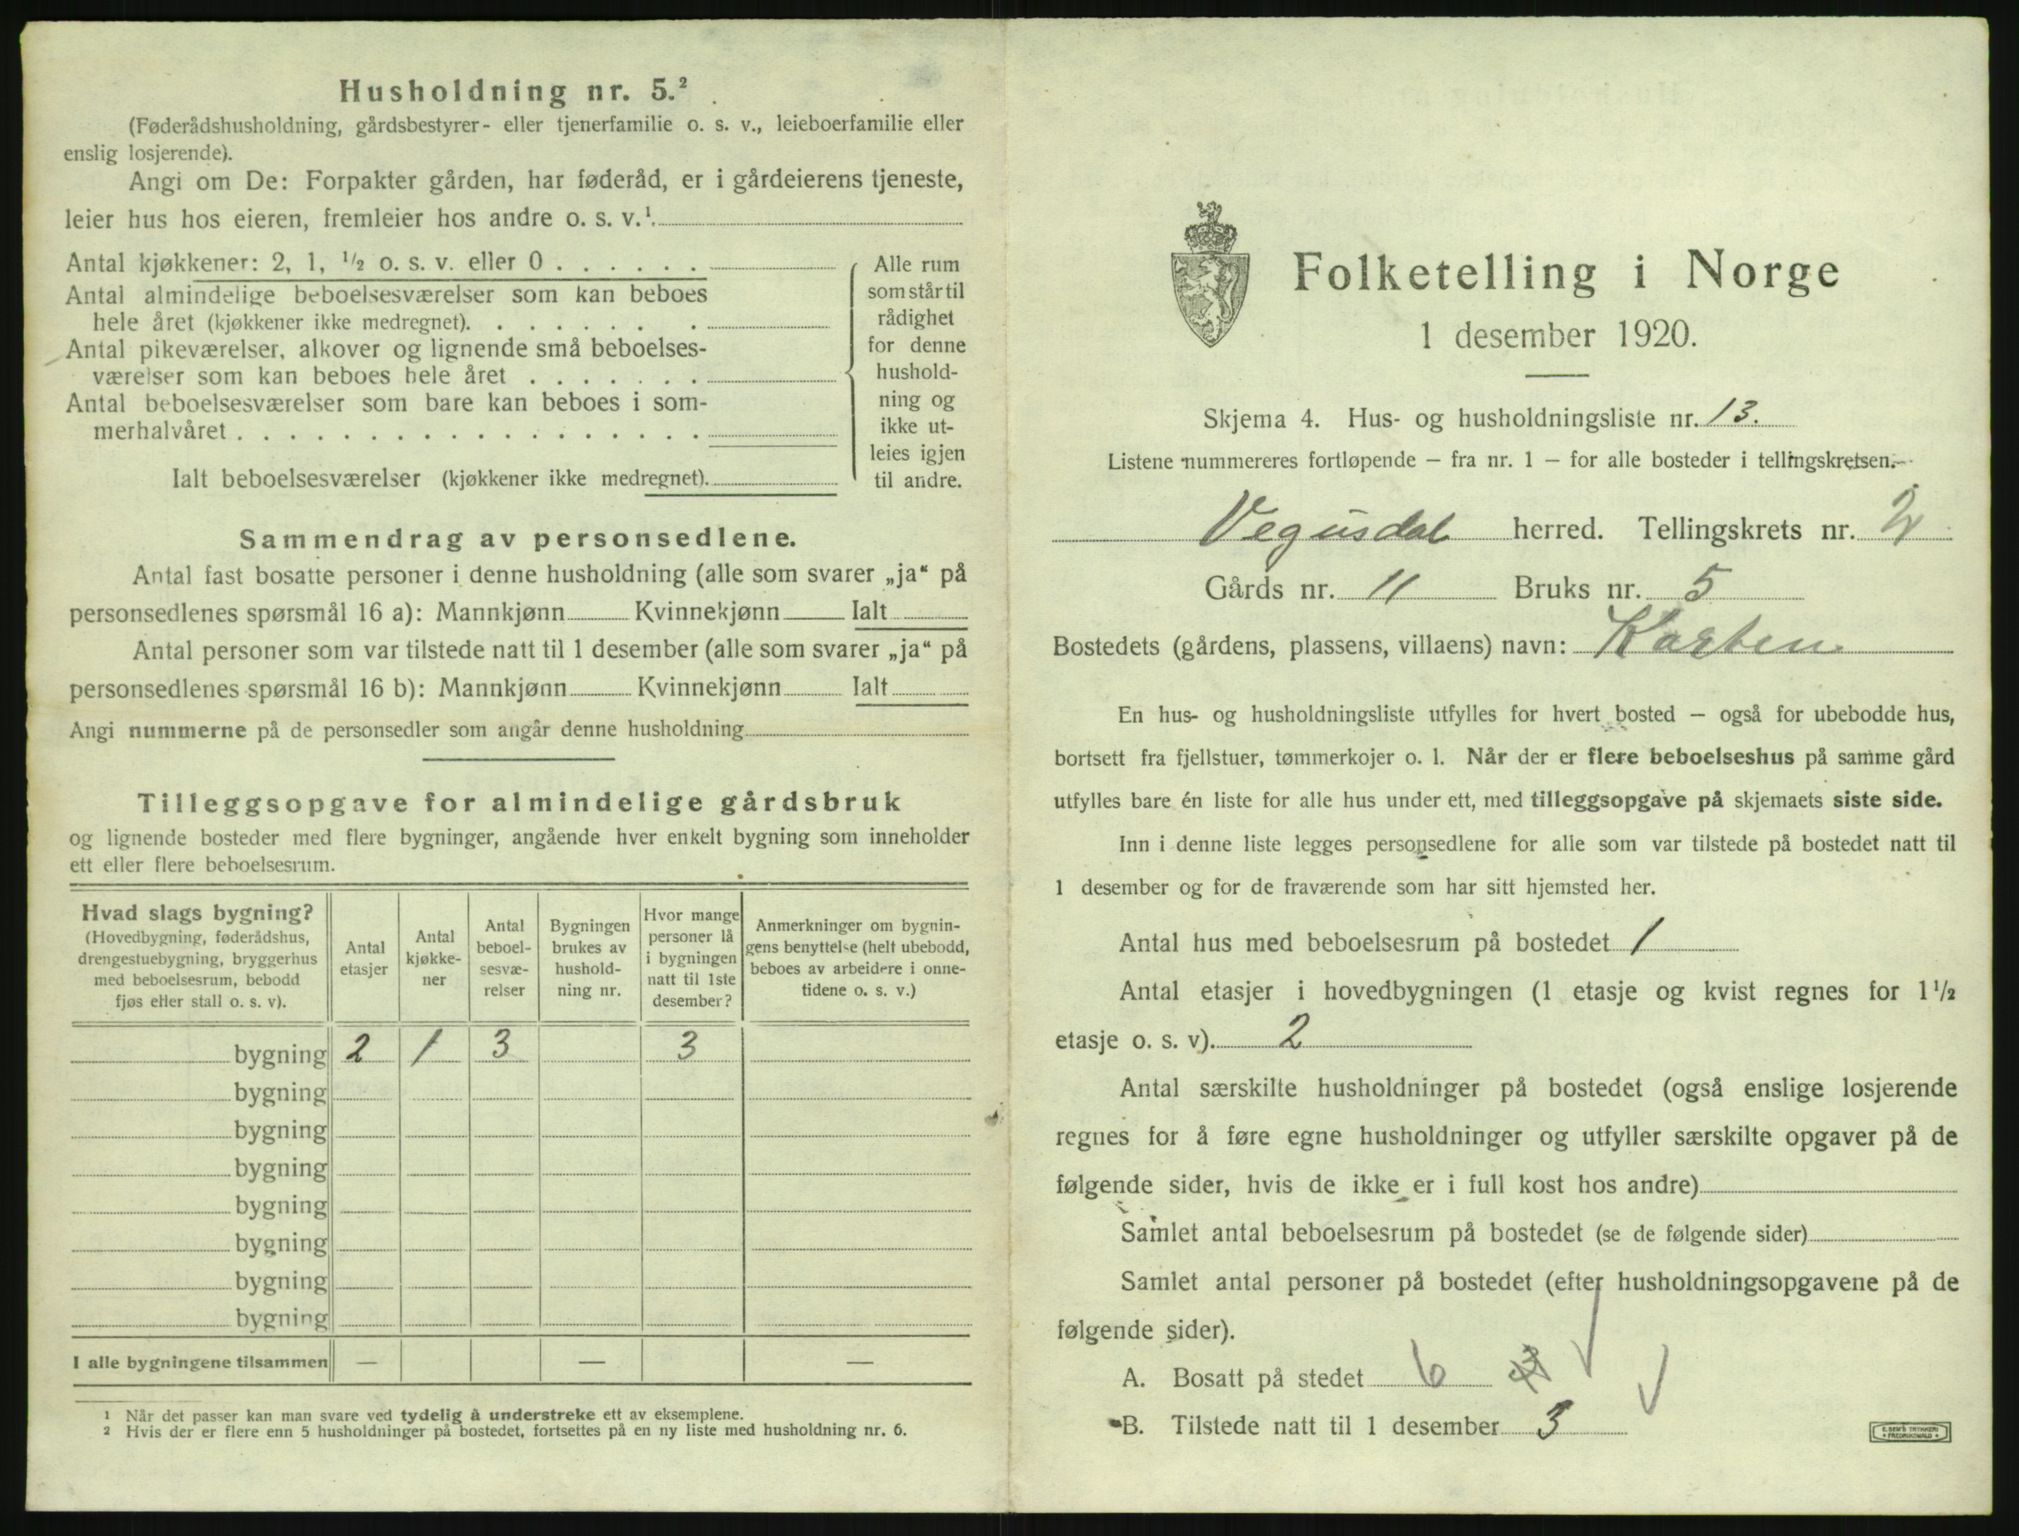 Husholdning nr. 5.²
(Føderådshusholdning, gårdsbestyrer- eller tjenerfamilie o. s. v., leieboerfamilie eller
enslig losjerende).
Angi om De: Forpakter gården, har føderåd, er i gårdeierens tjeneste,
leier hus hos eieren, fremleier hos andre o. s. v.¹.
Antal kjøkkener: 2, 1, ½ o. s. v. eller 0 . . . . . .
Antal almindelige beboelsesværelser som kan beboes
hele året (kjøkkener ikke medregnet). . . . . . . .
Antal pikeværelser, alkover og lignende små beboelses-
værelser som kan beboes hele året . . . . . . .
Antal beboelsesværelser som bare kan beboes i som-
merhalvåret . . . . . . . . . . . . . . . . . .
Ialt beboelsesværelser (kjøkkener ikke medregnet).
Alle rum
som står til
rådighet
for denne
hushold-
ning og
ikke ut-
leies igjen
til andre.
Sammendrag av personsedlene.
Antal fast bosatte personer i denne husholdning (alle som svarer „ja“ på
personsedlenes spørsmål 16 a): Mannkjønn Kvinnekjønn Ialt
Antal personer som var tilstede natt til 1 desember (alle som svarer „ja“ på
personsedlenes spørsmål 16 b): Mannkjønn Kvinnekjønn Ialt
Angi nummerne på de personsedler som angår denne husholdning
Tilleggsopgave for almindelige gårdsbruk
og lignende bosteder med flere bygninger, angående hver enkelt bygning som inneholder
ett eller flere beboelsesrum.
Hvad slags bygning?
(Hovedbygning, føderådshus,
drengestuebygning, bryggerhus
med beboelsesrum, bebodd
fjøs eller stall o. s. v).
Antal
etasjer
Antal
kjøkke-
ner
Antal
beboel-
sesvæ-
relser
Bygningen
brukes av
hushold-
ning nr.
Hvor mange
personer lå
i bygningen
natt til 1ste
desember?
Anmerkninger om bygnin-
gens benyttelse (helt ubebodd,
beboes av arbeidere i onne-
tidene o. s. v.)
bygning 2 1 3 3
bygning
bygning
bygning
bygning
bygning
bygning
bygning
I alle bygningene tilsammen — — —
1 Når det passer kan man svare ved tydelig å understreke ett av eksemplene.
2 Hvis der er flere enn 5 husholdninger på bostedet, fortsettes på en ny liste med husholdning nr. 6.
Folketelling i Norge
1 desember 1920.
Skjema 4. Hus- og husholdningsliste nr. 13.
Listene nummereres fortløpende – fra nr. 1 – for alle bosteder i tellingskretsen.
Vegusdal herred. Tellingskrets nr. 2
Gårds nr. 11 Bruks nr. 5
Bostedets (gårdens, plassens, villaens) navn: Karten
En hus- og husholdningsliste utfylles for hvert bosted – også for ubebodde hus,
bortsett fra fjellstuer, tømmerkojer o. l. Når der er flere beboelseshus på samme gård
utfylles bare én liste for alle hus under ett, med tilleggsopgave på skjemaets siste side.
Inn i denne liste legges personsedlene for alle som var tilstede på bostedet natt til
1 desember og for de fraværende som har sitt hjemsted her.
Antal hus med beboelsesrum på bostedet 1
Antal etasjer i hovedbygningen (1 etasje og kvist regnes for 1½
etasje o. s. v). 2
Antal særskilte husholdninger på bostedet (også enslige losjerende
regnes for å føre egne husholdninger og utfyller særskilte opgaver på de
følgende sider, hvis de ikke er i full kost hos andre)
Samlet antal beboelsesrum på bostedet (se de følgende sider)
Samlet antal personer på bostedet (efter husholdningsopgavene på de
følgende sider).
A. Bosatt på stedet 6
B. Tilstede natt til 1 desember 3